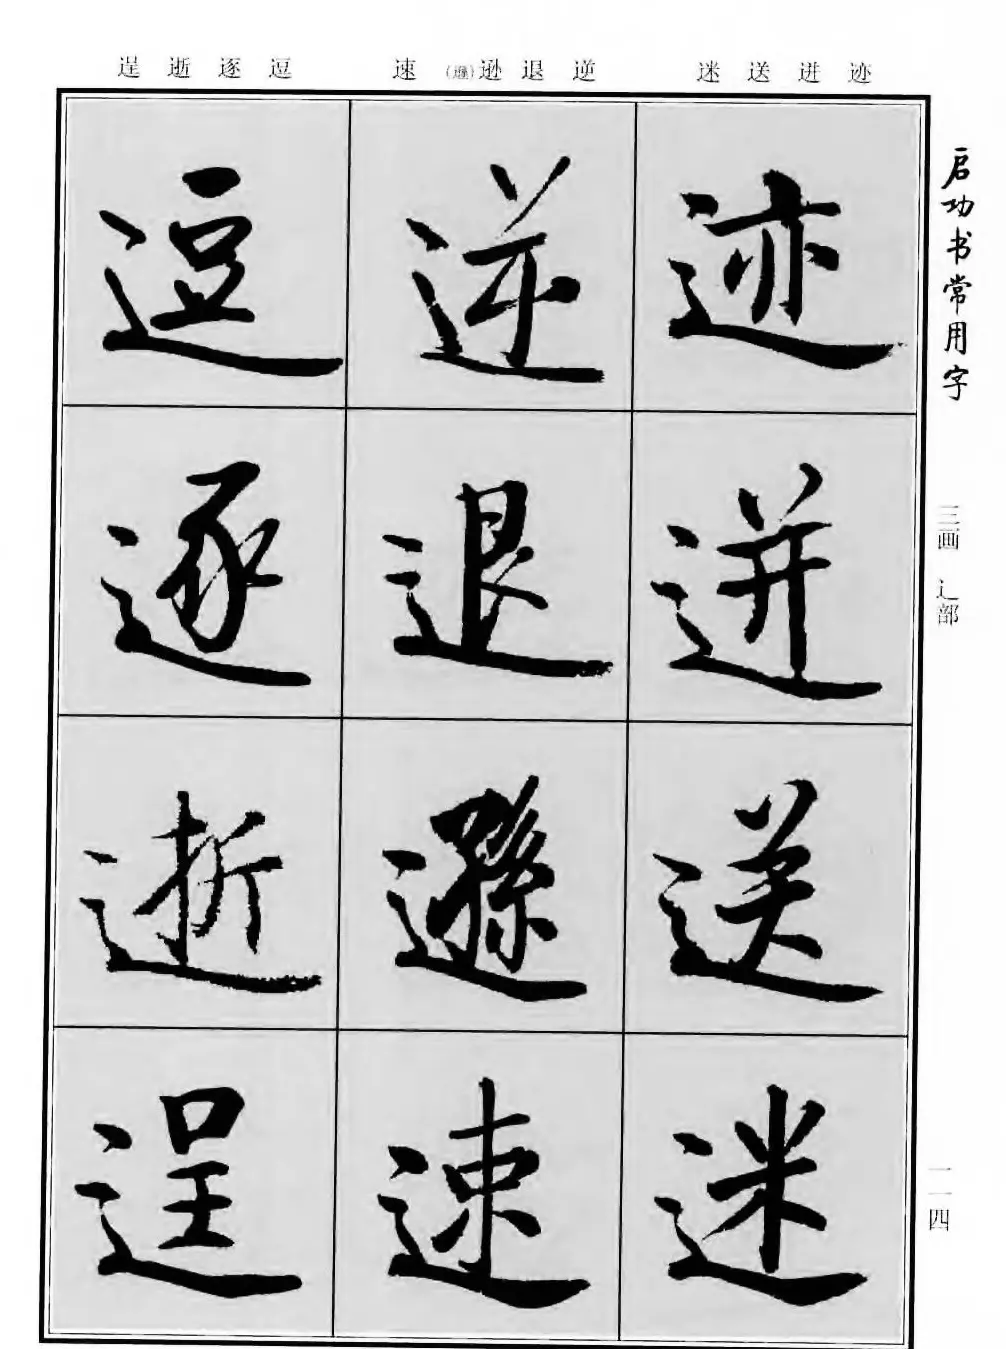 启功书常用字
三画 辶部
一一四
迹 迸 送 迷
逆 退 逊(遜) 速
逗 逐 逝 逞
迹
迸
送
迷
逆
退
遜
速
逗
逐
逝
逞